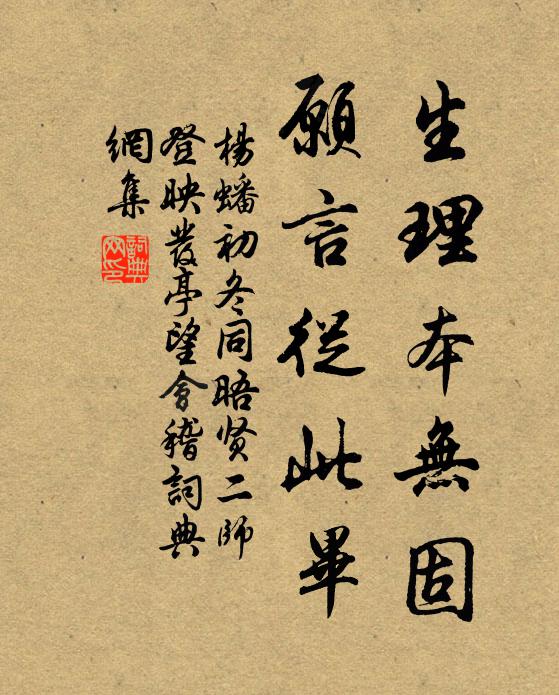 生理本無固
願言從此畢
楊蟠初冬同晤贤二师
登映發亭望會稽詞典
網集
詞典
网印